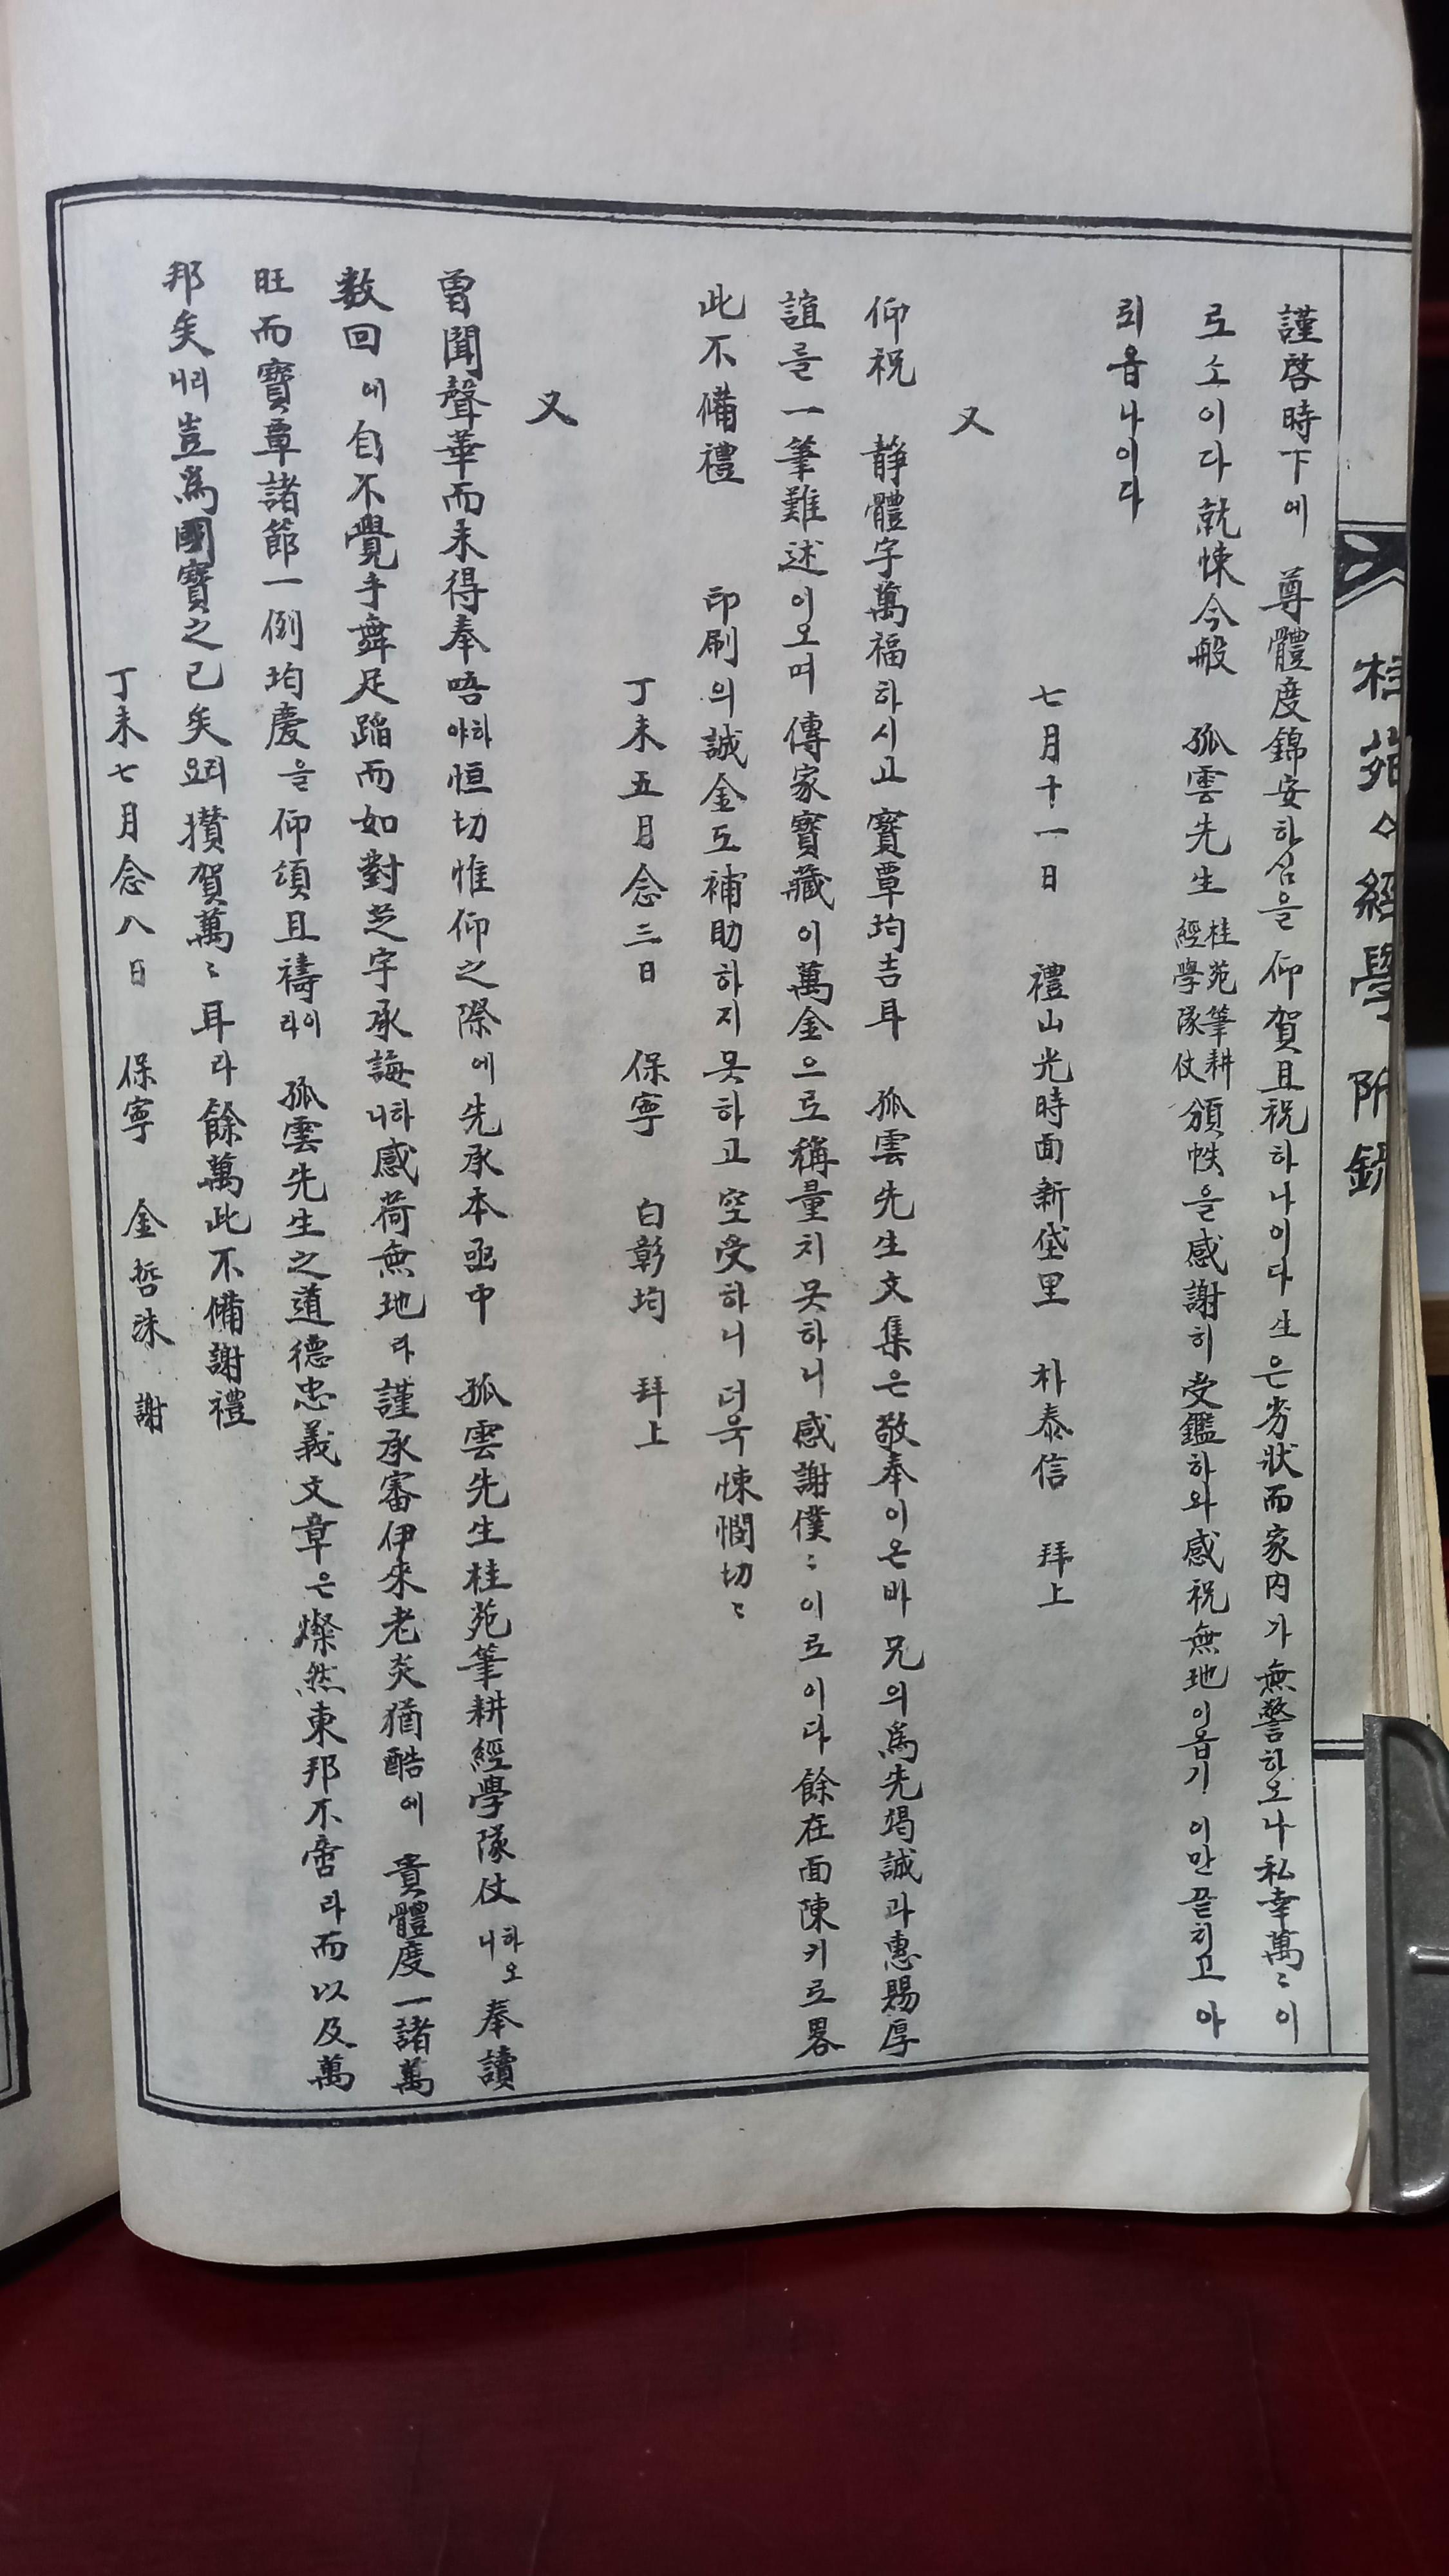 桂苑◇經學 附錄
謹啓時下에 尊體度錦安하심을 仰賀且祝하나이다 生은劣狀而家內가無警하오나私幸萬〻이
로소이다就悚今般 孤雲先生 桂苑筆耕經學隊仗 頒帙을感謝히受鑑하와感祝無地이옵기 이만끝치고 아
뢰옵나이다
七月十一日 禮山光時面新垈里 朴泰信 拜上
又
仰祝 靜體宇萬福하시고 寶覃均吉耳 孤雲先生文集은敬奉이온바 兄의爲先竭誠과惠賜厚
誼를一筆難述이오며 傳家寶藏이萬金으로稱量치못하니感謝僕〻이로이다餘在面陳키로畧
此不備禮 印刷의誠金도補助하지못하고空受하니더욱悚憫切〻
丁未五月念三日 保寧 白彰均 拜上
又
曾聞聲華而未得奉唔하야恒切惟仰之際에先承本函中 孤雲先生桂苑筆耕經學隊仗하오니 奉讀
数回에自不覺手舞足蹈而如對芝宇承誨하니感荷無地라謹承審伊來老炎猶酷에 貴體度一諸萬
旺而寶覃諸節一例均慶을仰頌且禱이라 孤雲先生之道德忠義文章은燦然東邦不啻라而以及萬
邦矣리니豈爲國寶之已矣리요攢賀萬〻耳라餘萬此不備謝禮
丁未七月念八日 保寧 金哲洙 謝